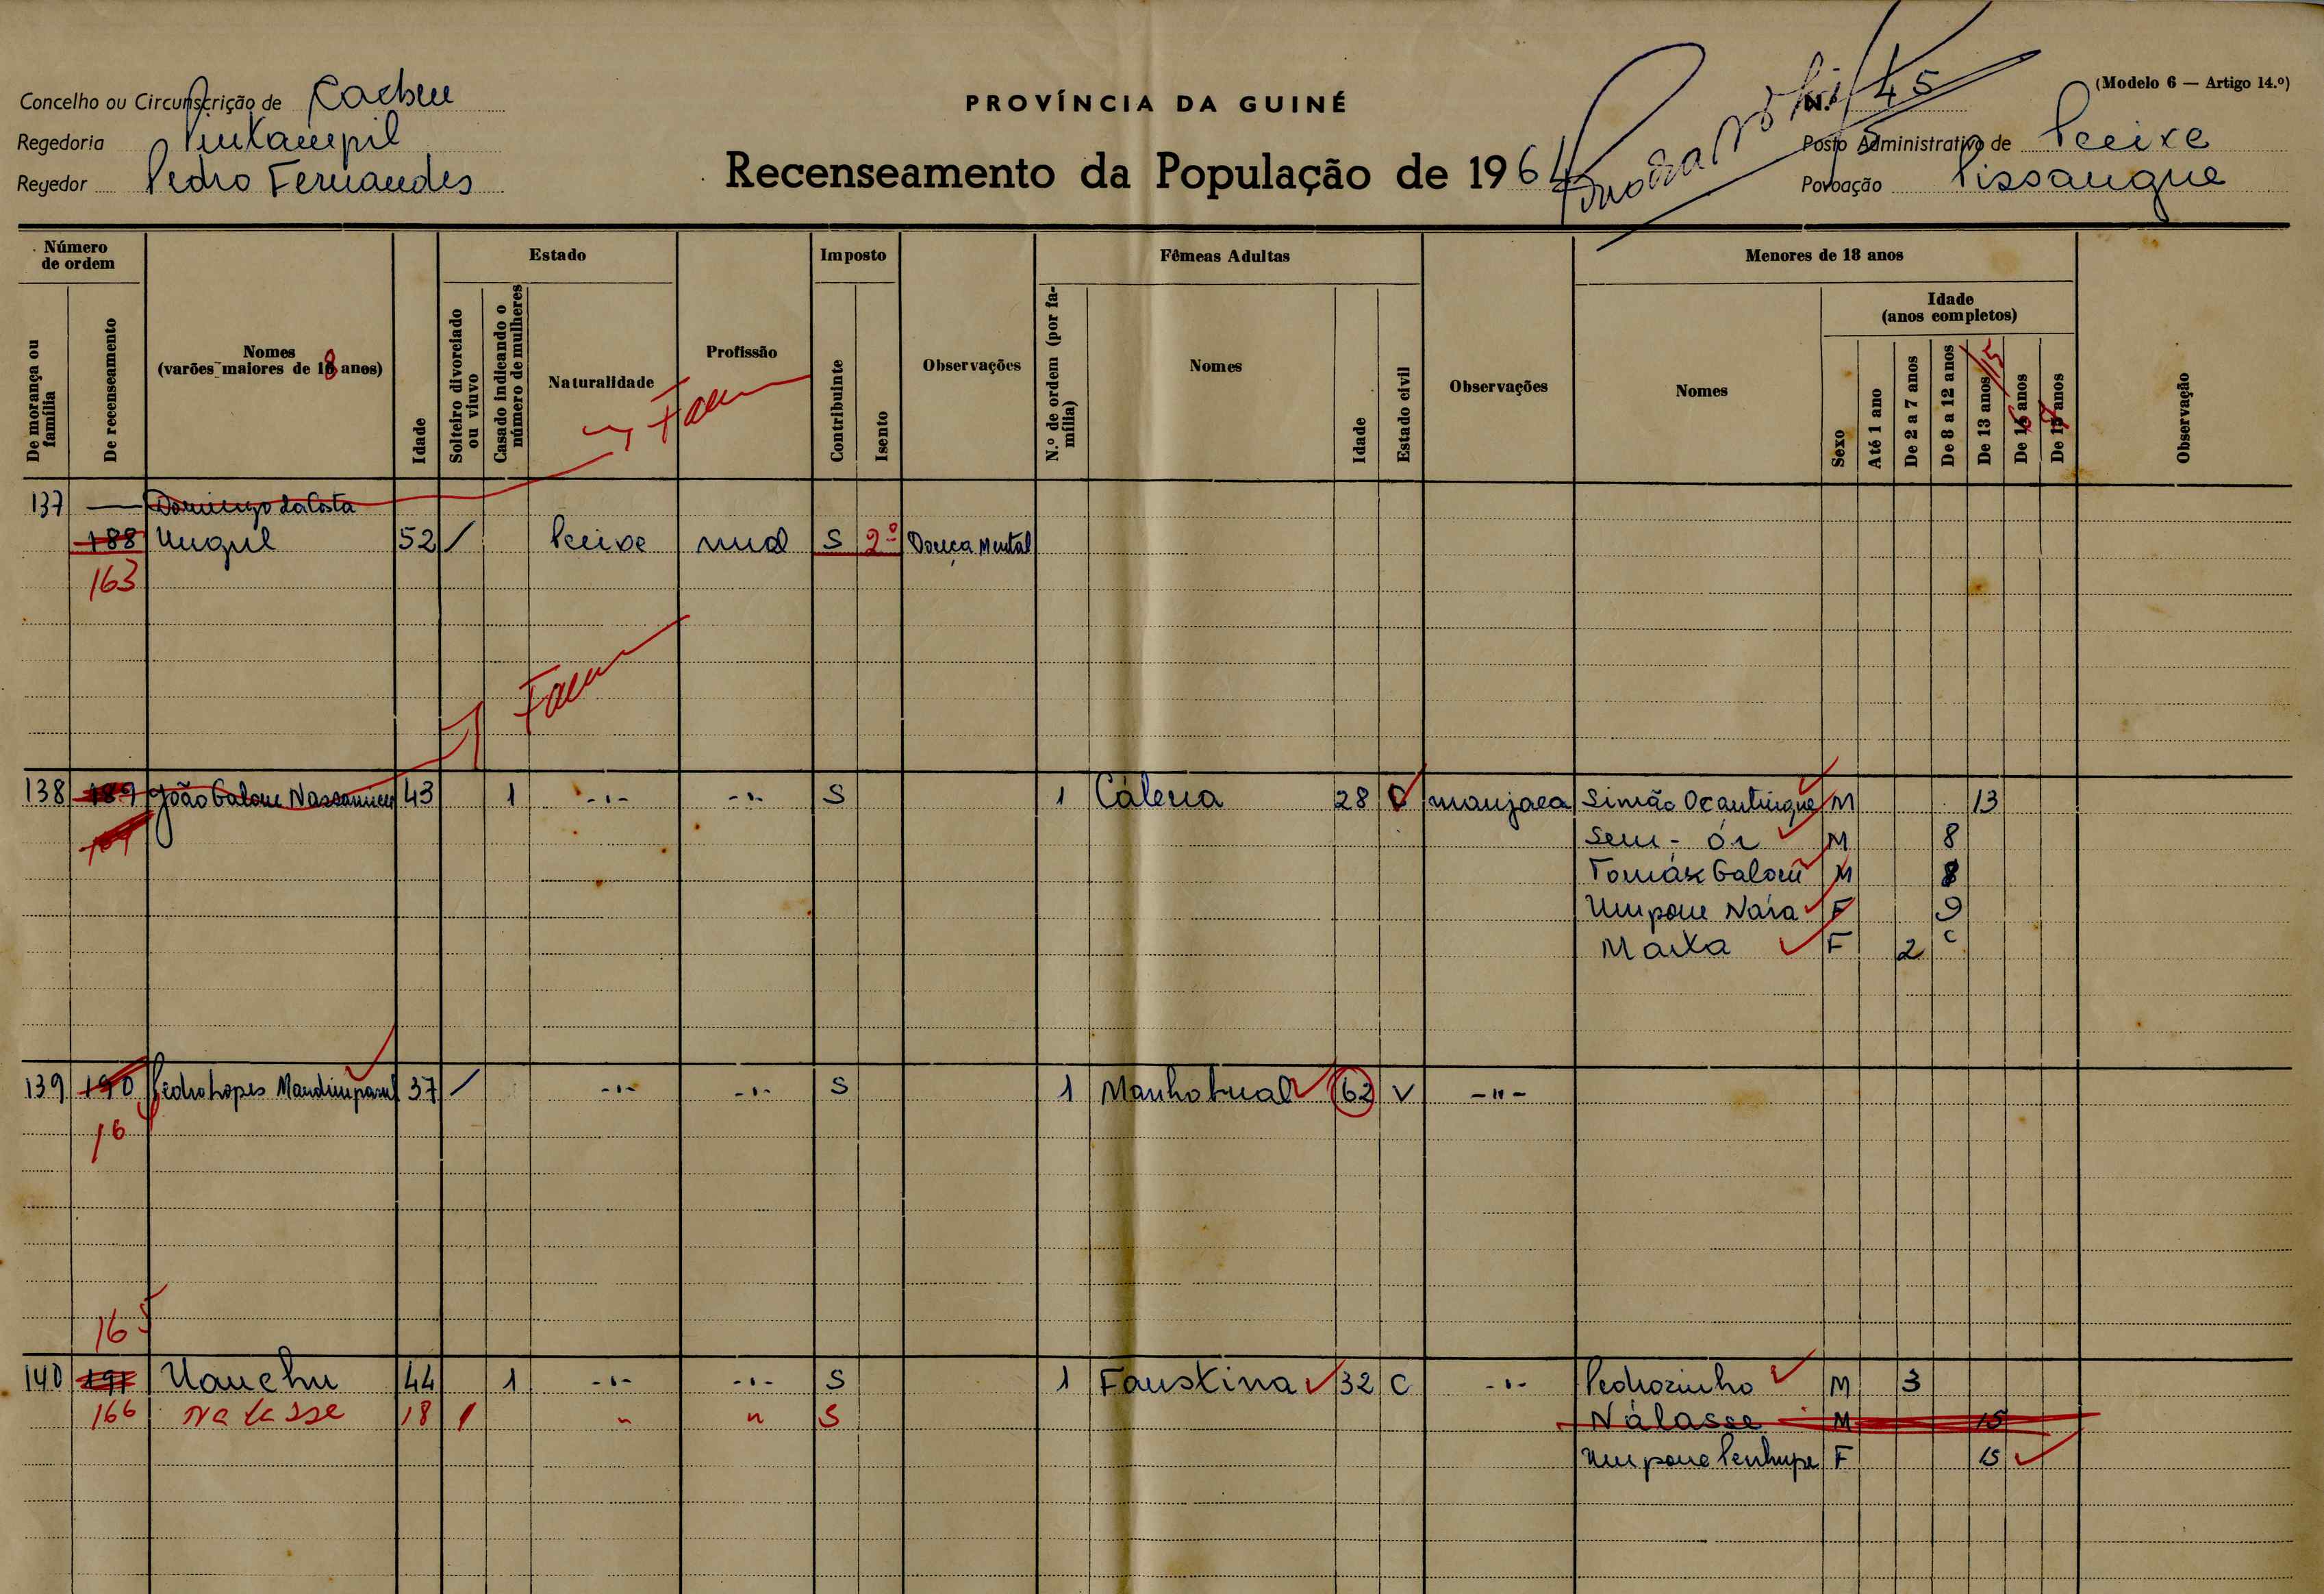 (Modelo 6 — Artigo 14.º)
Concelho ou Circunscrição de Cacheu
PROVÍNCIA DA GUINÉ
N.º 45
Regedoria
Posto Administrativo de Pecixe
Regedor Pedro Fernandes
Recenseamento da População de 1964
Povoação Pissangue
Número de ordem
Estado
Imposto
Fêmeas Adultas
Menores de 18 anos
De morança ou família
De recenseamento
Nomes (varões maiores de 18 anos)
Idade
Solteiro divorciado ou viuvo
Casado indicando o número de mulheres
Naturalidade
Profissão
Contribuinte
Isento
Observações
N.º de ordem (por família)
Nomes
Idade
Estado civil
Observações
Nomes
Sexo
Idade (anos completos)
Até 1 ano
De 2 a 7 anos
De 8 a 12 anos
De 13 anos 15
De 16 anos
De 17 anos
Observação
137 — Domingo da Costa
188 Ungul 52 / Pecixe S 2º Doença Mental
163
138 189 João Galom 43 1 -"- -"- S 1 Cáleria 28 C manjaca Simão Ocantingue M 13
Sem - ór M 8
Tomás Galom M 8
Umpone Naia F 9
Marta F 2
139 190 Pedro Lopes 37 / -"- -"- S 1 Manhobual 62 V -"-
16
165
140 191 Uanchu 44 1 -"- -"- S 1 Faustina 32 C -"- Pedrozinho M 3
166 Nalasse 18 / " " S Nálasse M 15
Umpone Penhupe F 15